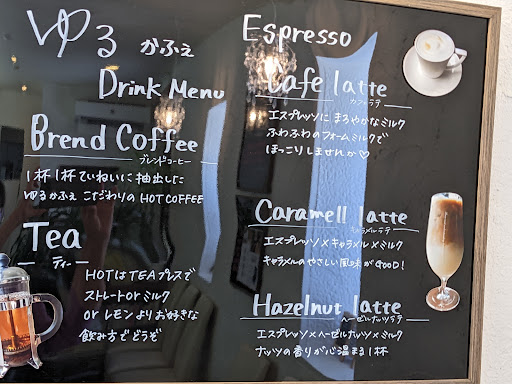 ゆる かふぇ
Drink Menu
Brend Coffee
ブレンドコーヒー
1杯1杯ていねいに抽出した
ゆるかふぇ こだわりの HOT COFFEE
Tea
ティー
HOTはTEAプレスで
ストレートorミルク
orレモンよりお好きな
飲み方でどうぞ
Espresso
Cafe latte
カフェラテ
エスプレッソにまろやかなミルク
ふわふわのフォームミルクで
ほっこりしませんか♡
Caramell latte
キャラメルラテ
エスプレッソ×キャラメル×ミルク
キャラメルのやさしい風味がGOOD!
Hazelnut latte
ヘーゼルナッツラテ
エスプレッソ×ヘーゼルナッツ×ミルク
ナッツの香りが心温まる1杯